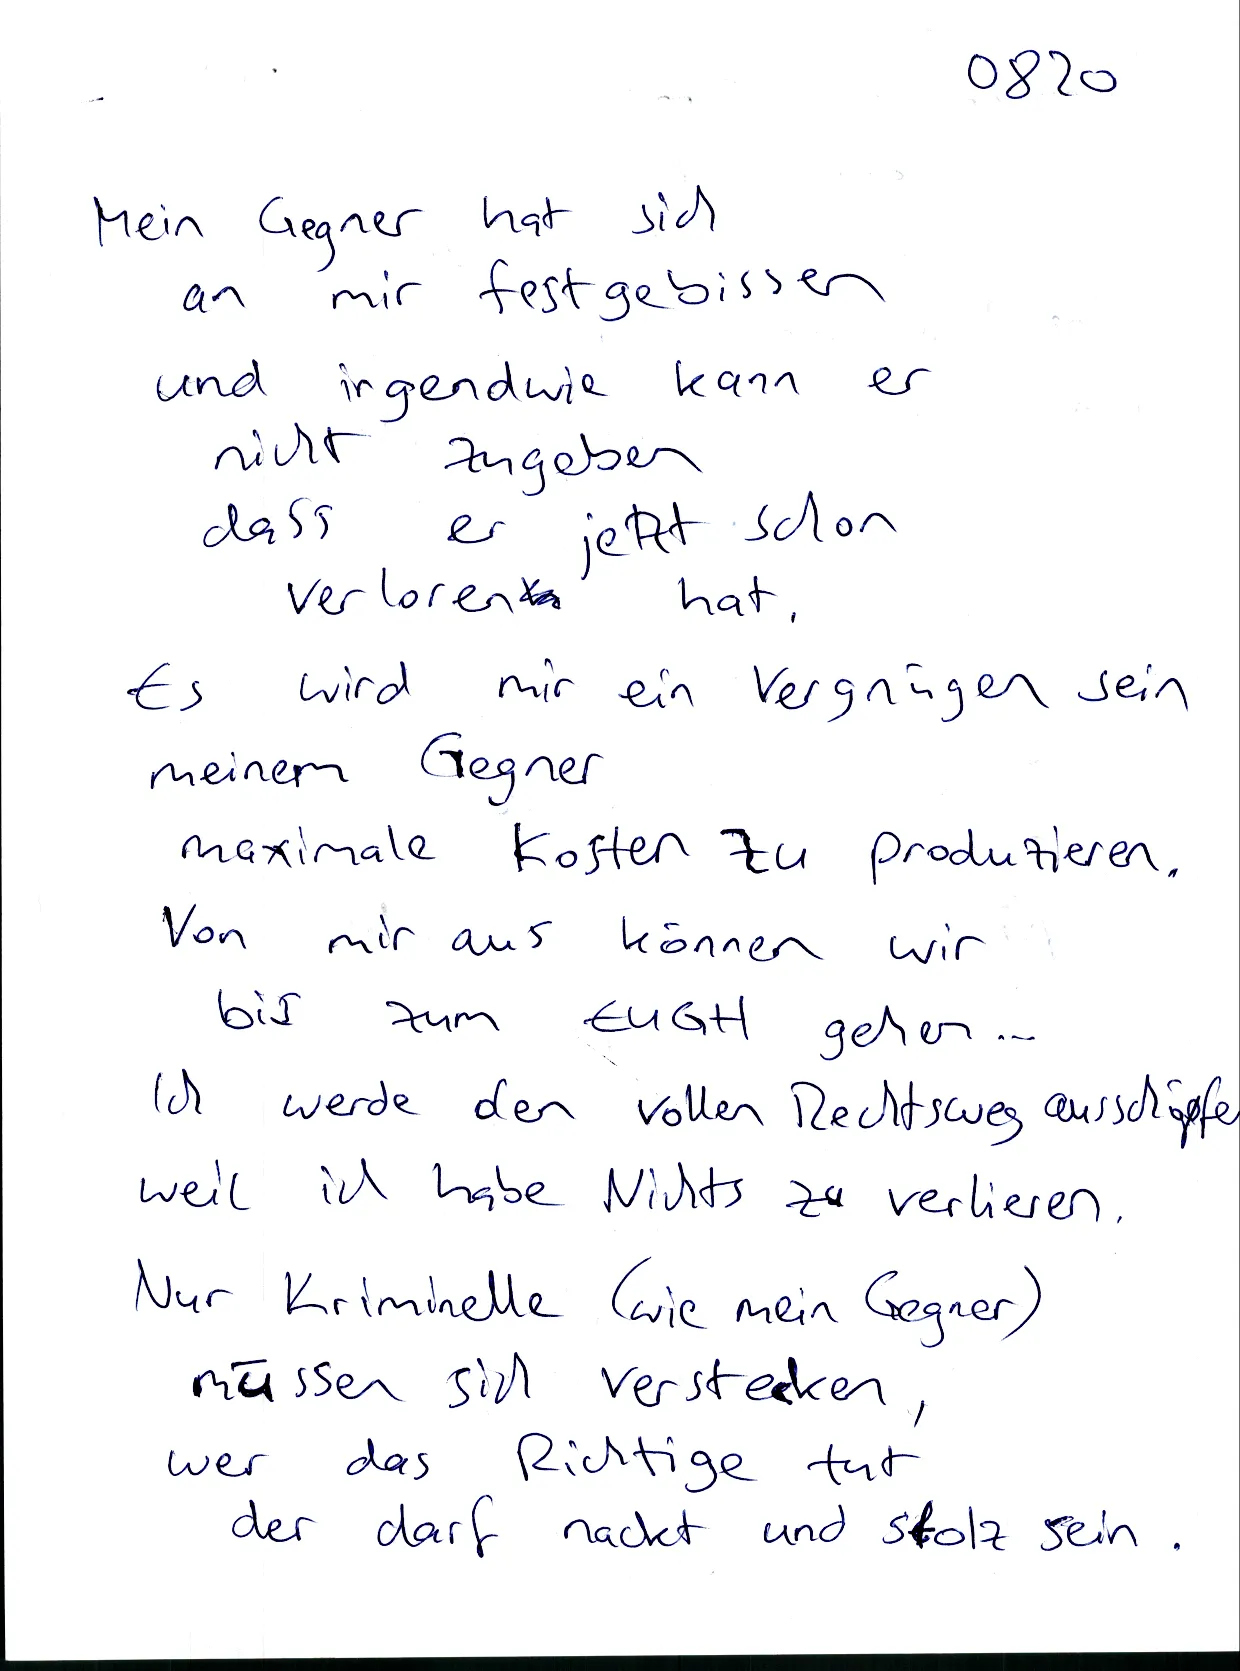 0820
Mein Gegner hat sich
an mir festgebissen
und irgendwie kann er
nicht zugeben
dass er jetzt schon
verloren hat.
Es wird mir ein Vergnügen sein
meinem Gegner
maximale Kosten zu produzieren.
Von mir aus können wir
bis zum EUGH gehen...
Ich werde den vollen Rechtsweg ausschöpfe
weil ich habe Nichts zu verlieren.
Nur Kriminelle (wie mein Gegner)
müssen sich verstecken,
wer das Richtige tut
der darf nackt und stolz sein.